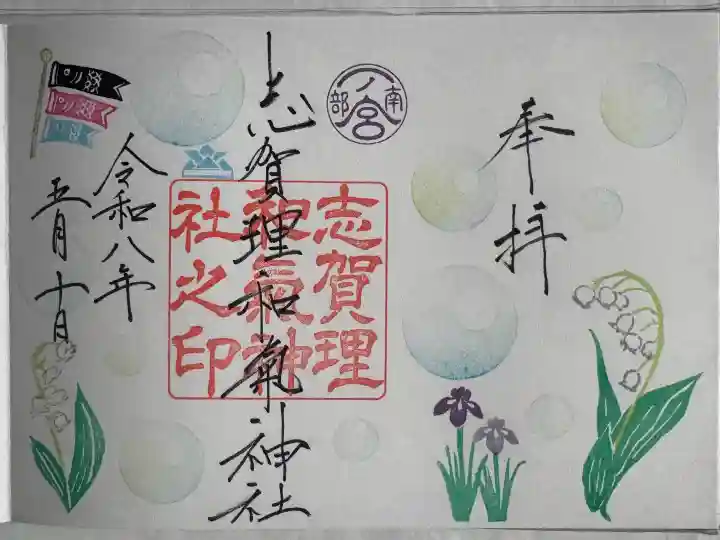 奉拝
一ノ宮
南部
志賀理和氣神社
志賀理
和氣神
社之印
令和八年
五月十日